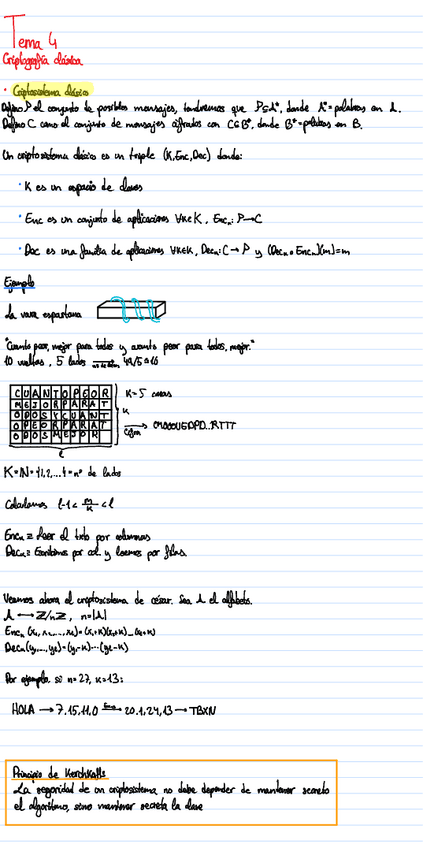 Tema 4
Criptografía clásica
· Criptosistema clásico
Defino P el conjunto de posibles mensajes, tendremos que P⊆A*, donde A*=palabras en A.
Defino C como el conjunto de mensajes cifrados con C⊆B*, donde B*=palabras en B.
Un criptosistema clásico es un triple (K,Enc,Dec) donde:
· K es un espacio de claves
· Enc es un conjunto de aplicaciones ∀k∈K, Enc_k: P→C
· Dec es una familia de aplicaciones ∀k∈K, Dec_k: C→P y (Dec_k ∘ Enc_k)(m)=m
Ejemplo
La vara espartana
"Cuanto peor, mejor para todos y cuanto peor para todos, mejor."
10 vueltas, 5 lados 49/5≈10
C U A N T O P E O R
M E J O R P A R A T
O D O S Y C U A N T
O P E O R P A R A T
O D O S M E J O R
K=5 caras
k
Cifrar
CMOOOUEDPD...RTTT
l
K=N={1,2,...}=nº de lados
Calculamos l-1 < m/k < l
Enc_k ≡ Leer el texto por columnas
Dec_k ≡ Escribimos por col. y leemos por filas.
Veamos ahora el criptosistema de césar. Sea A el alfabeto.
A → Z/nZ, n=|A|
Enc_k (x₁, x₂,..., x_l)=(x₁+k)(x₂+k)...(x_l+k)
Dec_k(y₁,...,y_l)=(y₁-k)...(y_l-k)
Por ejemplo, si n=27, k=13:
HOLA → 7.15.11.0 → 20.1.24.13 → TBXN
Principio de Kerchkoffs
La seguridad de un criptosistema no debe depender de mantener secreto
el algoritmo, sino mantener secreta la clave